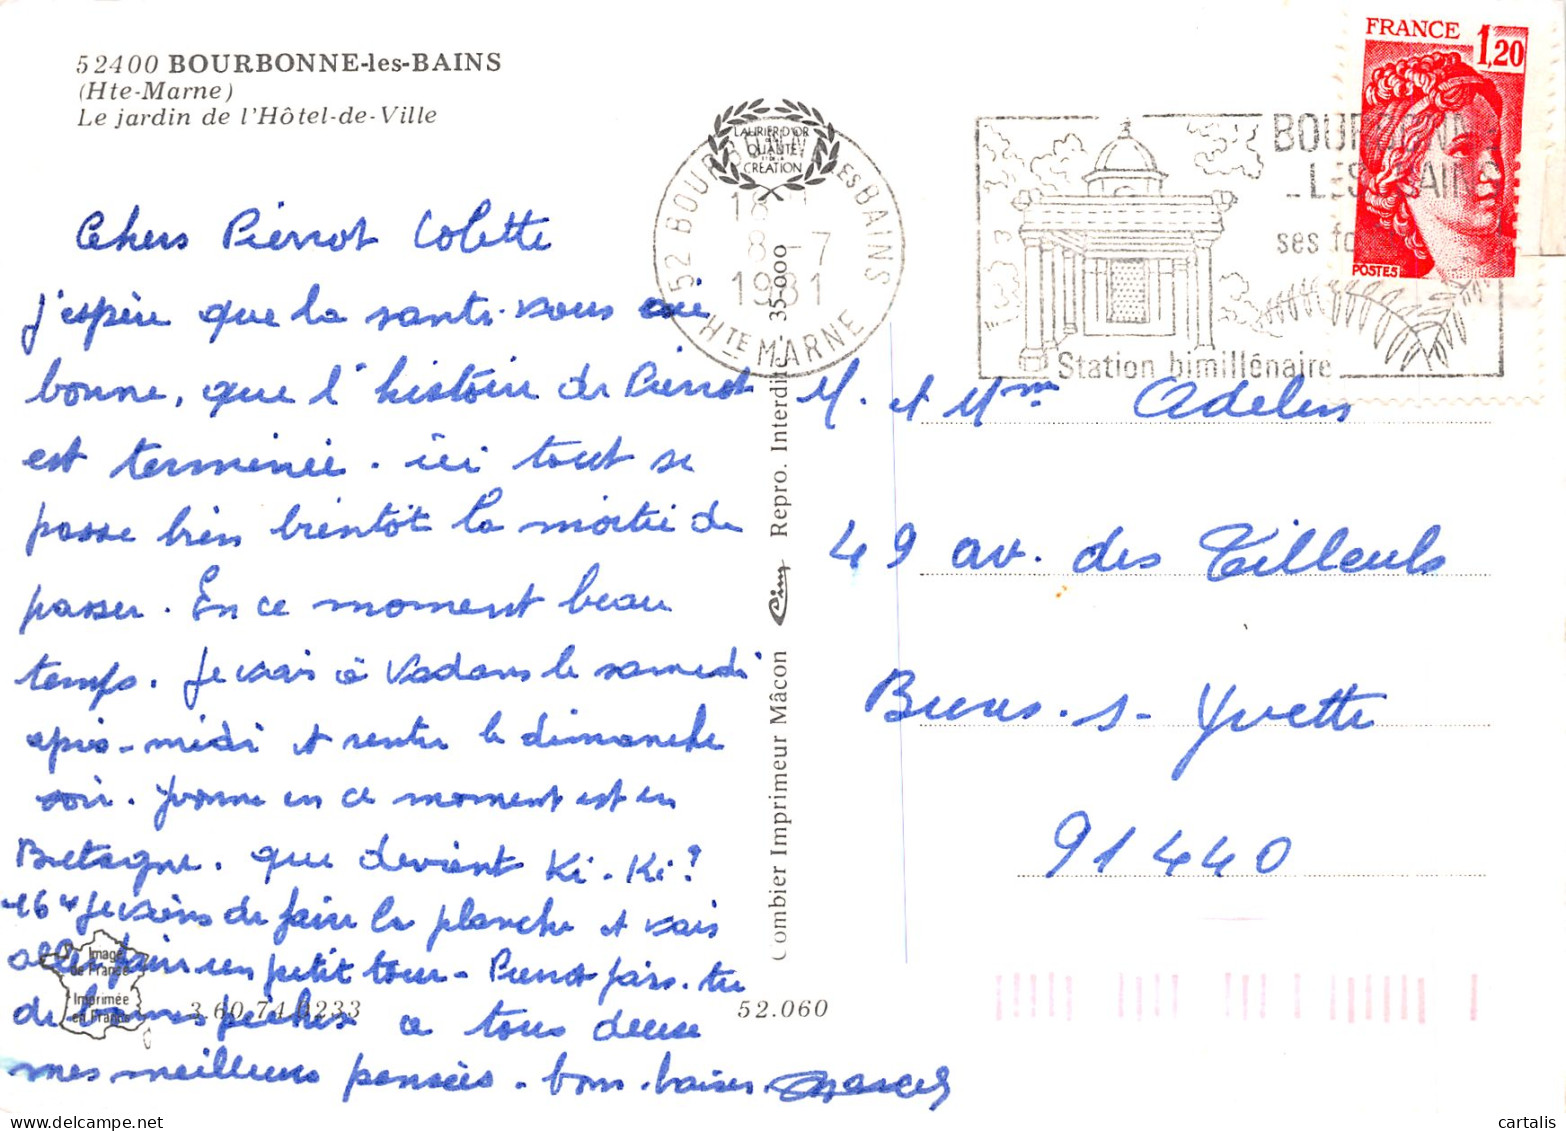 52400 BOURBONNE-les-BAINS
(Hte-Marne)
Le jardin de l'Hôtel-de-Ville
Chers Pierrot Colette
j'espère que la santé vous aie
bonne, que l'histoire de Pierrot
est terminée. ici tout se
passe bien bientôt la moitié de
passer. En ce moment beau
temps. Je vais à Vadans le samedi
après-midi et rentre le dimanche
soir. Yvonne en ce moment est en
Bretagne. que devient Ki-Ki?
16H je viens de faire la planche et vais
aller faire un petit tour - Pierrot fais-tu
de bonnes pêches a tous deux
mes meilleures pensées. bons baisers.
Image
de France
Imprimée
en France
3.60.74.0233
52.060
Combier Imprimeur Mâcon Cim Repro. Interdite 35-000
LAURIER D'OR
QUALITÉ
CREATION
52 BOURBONNE LES BAINS
18H
8-7
1981
HTE MARNE
BOURBONNE
LES BAINS
ses
Station bimillénaire
FRANCE 1,20
POSTES
M. et Mme
49 av. des Tilleuls
Bures-s-Yvette
91440
cartalis